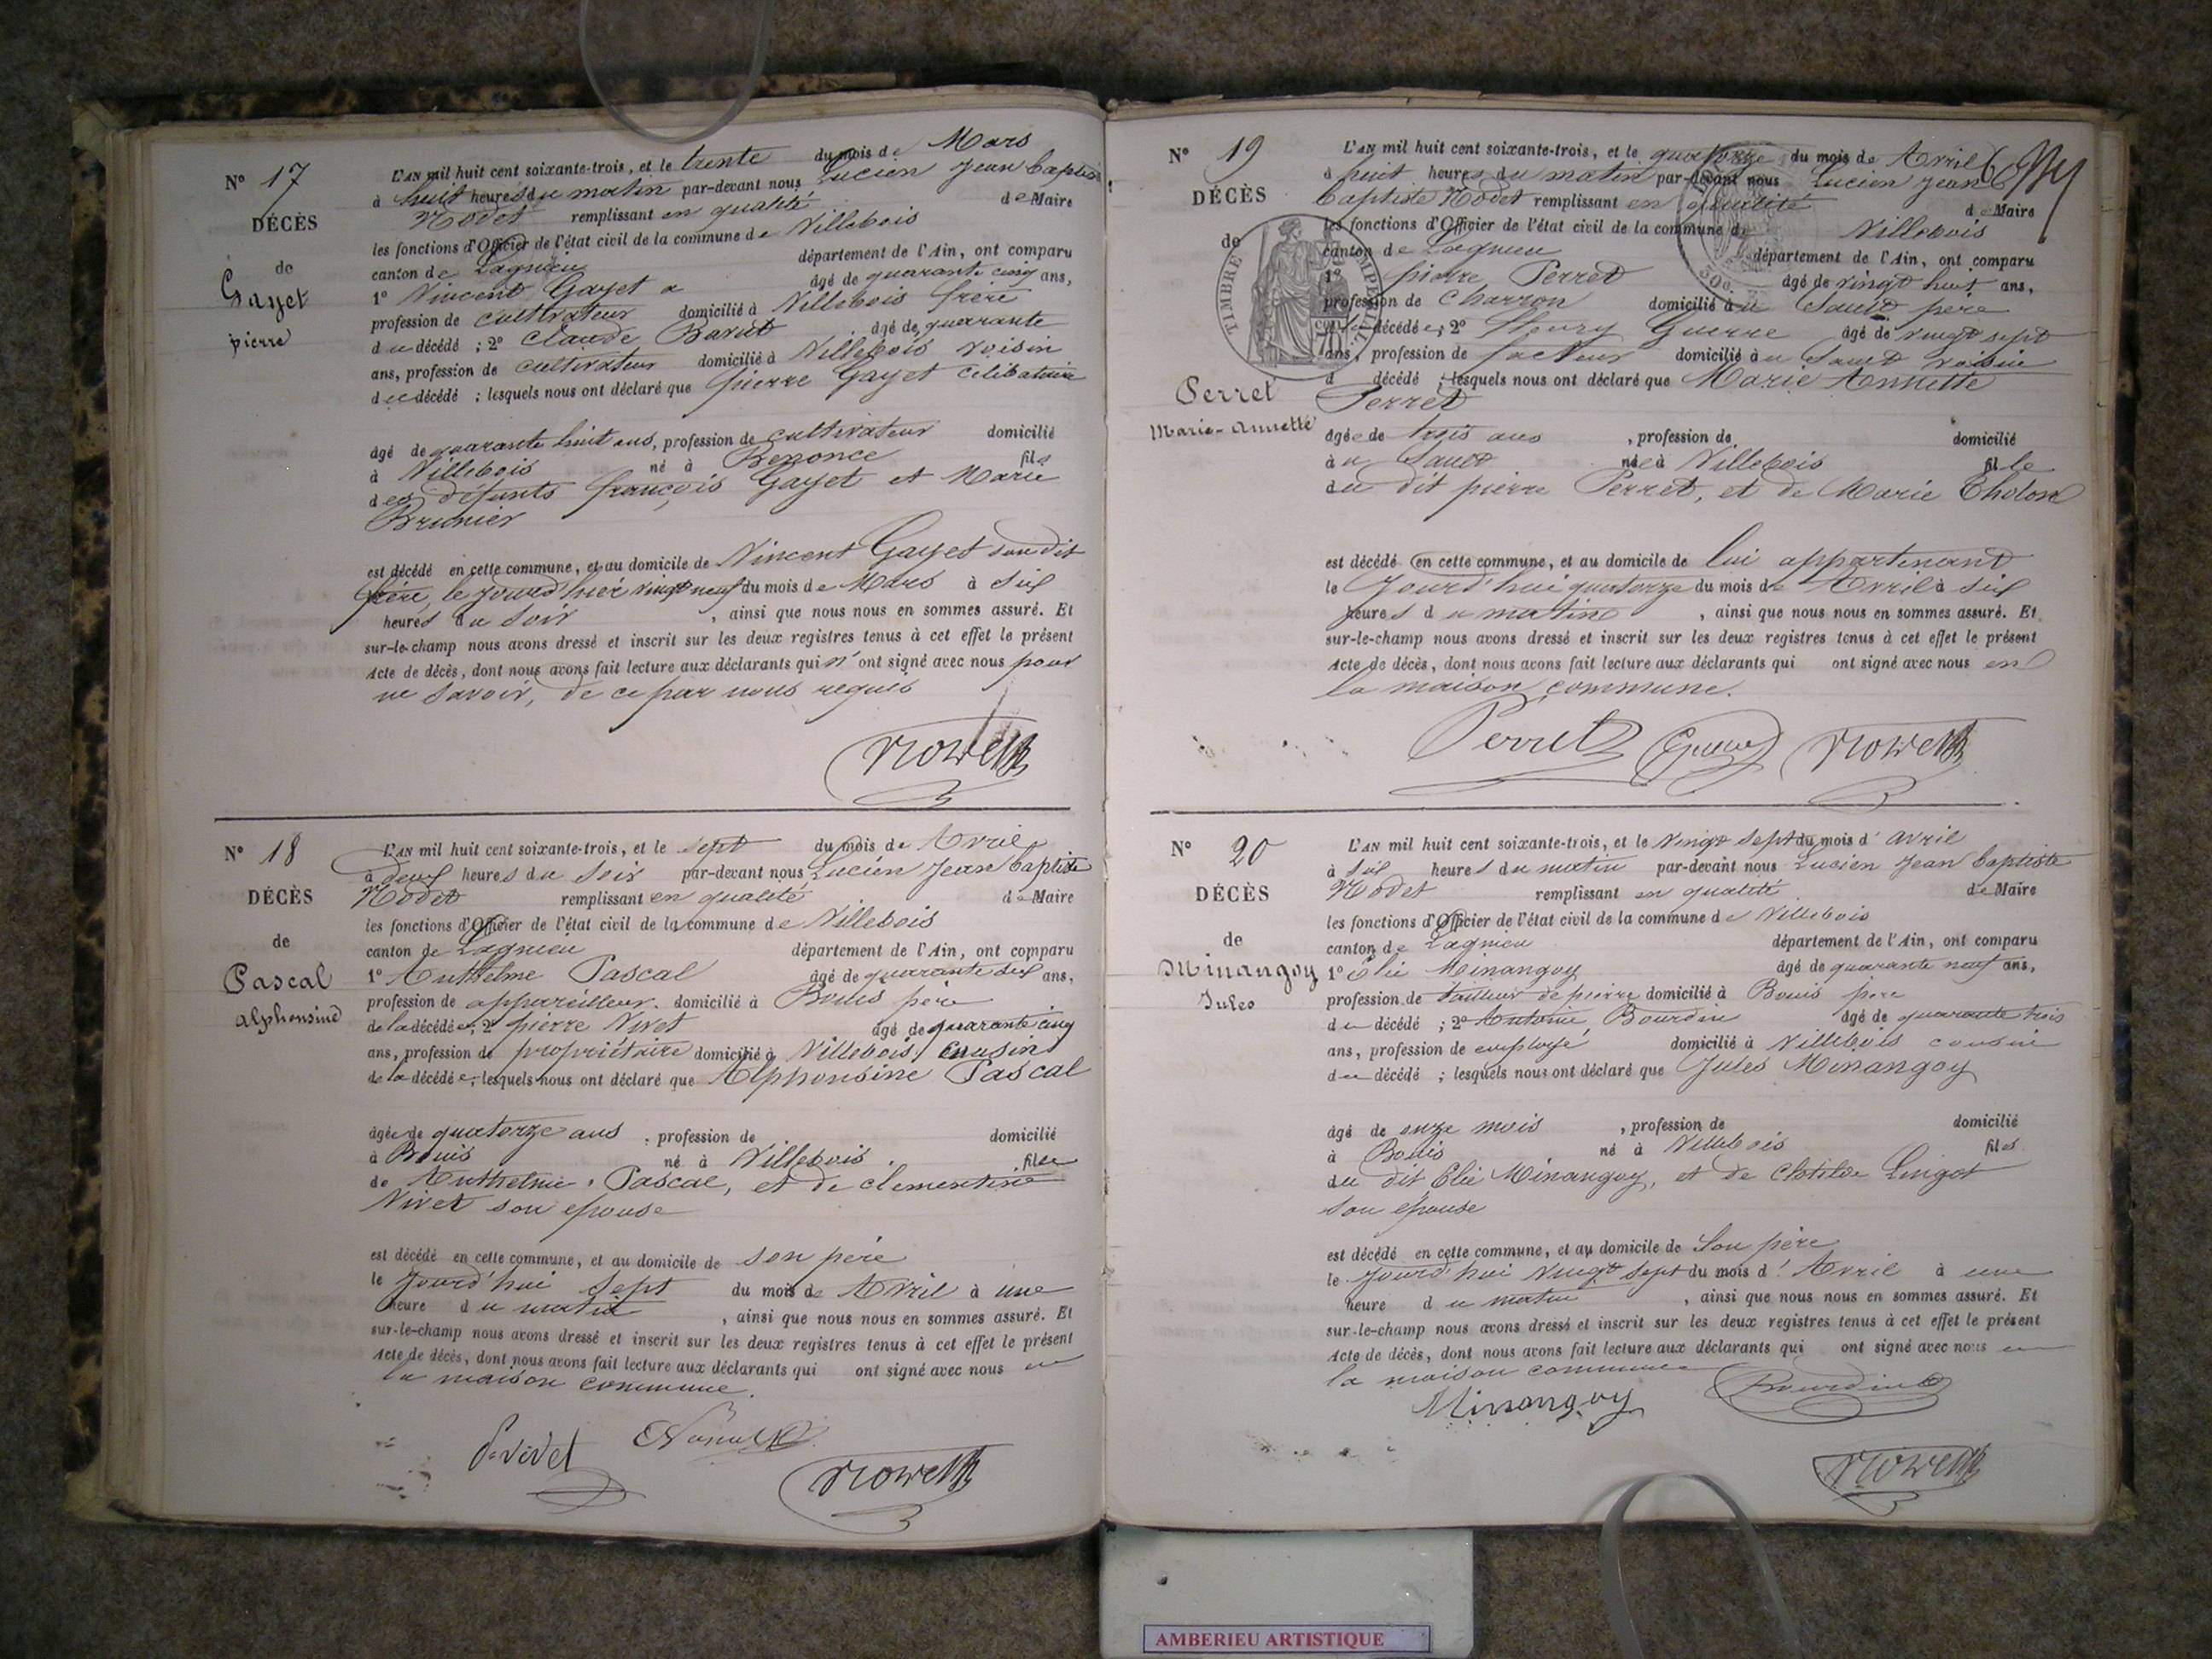 N° 17
DÉCÈS
de
Gayet
pierre
L'AN mil huit cent soixante-trois, et le trente du mois de Mars
à huit heures du matin par-devant nous Lucien Jean baptiste
Nodet remplissant en qualité de Maire
les fonctions d'Officier de l'état civil de la commune de Villebois
canton de Lagnieu département de l'Ain, ont comparu
1° Vincent Gayet âgé de quarante cinq ans,
profession de cultivateur domicilié à Villebois frère
du décédé ; 2° Claude Baret âgé de quarante
ans, profession de cultivateur domicilié à Villebois voisin
du décédé ; lesquels nous ont déclaré que pierre Gayet célibataire
âgé de quarante huit ans, profession de cultivateur domicilié
à Villebois né à Benonce fils
des défunts françois Gayet et Marie
Brunier
est décédé en cette commune, et au domicile de Vincent Gayet son dit
frère, le jourd'hier vingt neuf du mois de Mars à six
heures du soir , ainsi que nous nous en sommes assuré. Et
sur-le-champ nous avons dressé et inscrit sur les deux registres tenus à cet effet le présent
Acte de décès, dont nous avons fait lecture aux déclarants qui n'ont signé avec nous pour
ne savoir, de ce par nous requis
N° 18
DÉCÈS
de
Pascal
alphonsine
L'AN mil huit cent soixante-trois, et le sept du mois de Avril
à deux heures du soir par-devant nous Lucien Jean baptiste
Nodet remplissant en qualité de Maire
les fonctions d'Officier de l'état civil de la commune de Villebois
canton de Lagnieu département de l'Ain, ont comparu
1° Anthelme Pascal âgé de quarante six ans,
profession de appareilleur domicilié à Bouis père
de la décédée; 2° pierre Nivet âgé de quarante cinq
ans, profession de propriétaire domicilié à Villebois cousin
de la décédée; lesquels nous ont déclaré que Alphonsine Pascal
âgée de quatorze ans , profession de domicilié
à Bouis né à Villebois fille
de Anthelme Pascal, et de clementine
Nivet son epouse
est décédé en cette commune, et au domicile de son père
le jourd'hui sept du mois de Avril à une
heure du matin , ainsi que nous nous en sommes assuré. Et
sur-le-champ nous avons dressé et inscrit sur les deux registres tenus à cet effet le présent
Acte de décès, dont nous avons fait lecture aux déclarants qui ont signé avec nous en
la maison commune.
N° 19
DÉCÈS
de
TIMBRE IMPÉRIAL
Perret
Marie-Annette
L'AN mil huit cent soixante-trois, et le quatorze du mois de Avril
à huit heures du matin par-devant nous Lucien Jean
baptiste Nodet remplissant en qualité de Maire
les fonctions d'Officier de l'état civil de la commune de Villebois
canton de Lagnieu département de l'Ain, ont comparu
1° pierre Perret âgé de vingt huit ans,
profession de charron domicilié à u Sault père
décédée; 2° fleury Guerre âgé de vingt sept
ans, profession de facteur domicilié à u Sault voisin
d décédé ; lesquels nous ont déclaré que Marie Annette
Perret
âgée de trois ans , profession de domicilié
à u Sault née à Villebois fille
du dit pierre Perret, et de Marie Tholon
est décédé en cette commune, et au domicile de lui appartenant
le jourd'hui quatorze du mois de Avril à six
heures du matin , ainsi que nous nous en sommes assuré. Et
sur-le-champ nous avons dressé et inscrit sur les deux registres tenus à cet effet le présent
Acte de décès, dont nous avons fait lecture aux déclarants qui ont signé avec nous en
la maison commune.
Perret
N° 20
DÉCÈS
de
Minangoy
Jules
L'AN mil huit cent soixante-trois, et le vingt sept du mois d'avril
à six heures du matin par-devant nous Lucien Jean baptiste
Nodet remplissant en qualité de Maire
les fonctions d'Officier de l'état civil de la commune de Villebois
canton de Lagnieu département de l'Ain, ont comparu
1° Elie Minangoy âgé de quarante neuf ans,
profession de tailleur de pierre domicilié à Bouis père
du décédé ; 2° Antoine Bourdin âgé de quarante trois
ans, profession de employé domicilié à Villebois cousin
du décédé ; lesquels nous ont déclaré que Jules Minangoy
âgé de onze mois , profession de domicilié
à Bouis né à Villebois fils
du dit Elie Minangoy, et de Clotilde Lingot
son épouse
est décédé en cette commune, et au domicile de son père
le jourd'hui vingt sept du mois d'Avril à une
heure du matin , ainsi que nous nous en sommes assuré. Et
sur-le-champ nous avons dressé et inscrit sur les deux registres tenus à cet effet le présent
Acte de décès, dont nous avons fait lecture aux déclarants qui ont signé avec nous en
la maison commune
Minangoy Bourdin
AMBERIEU ARTISTIQUE